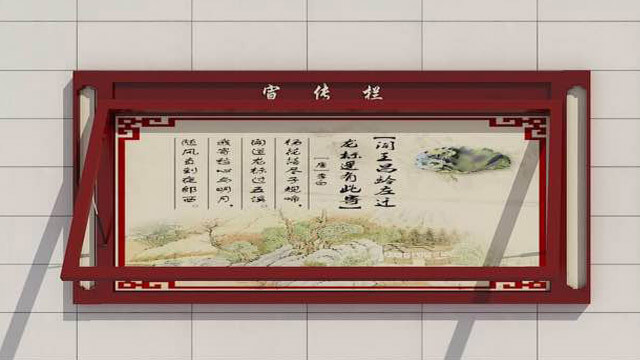 宣传栏
【闻王昌龄左迁
龙标遥有此寄】
[唐]李白
杨花落尽子规啼，
闻道龙标过五溪。
我寄愁心与明月，
随风直到夜郎西。